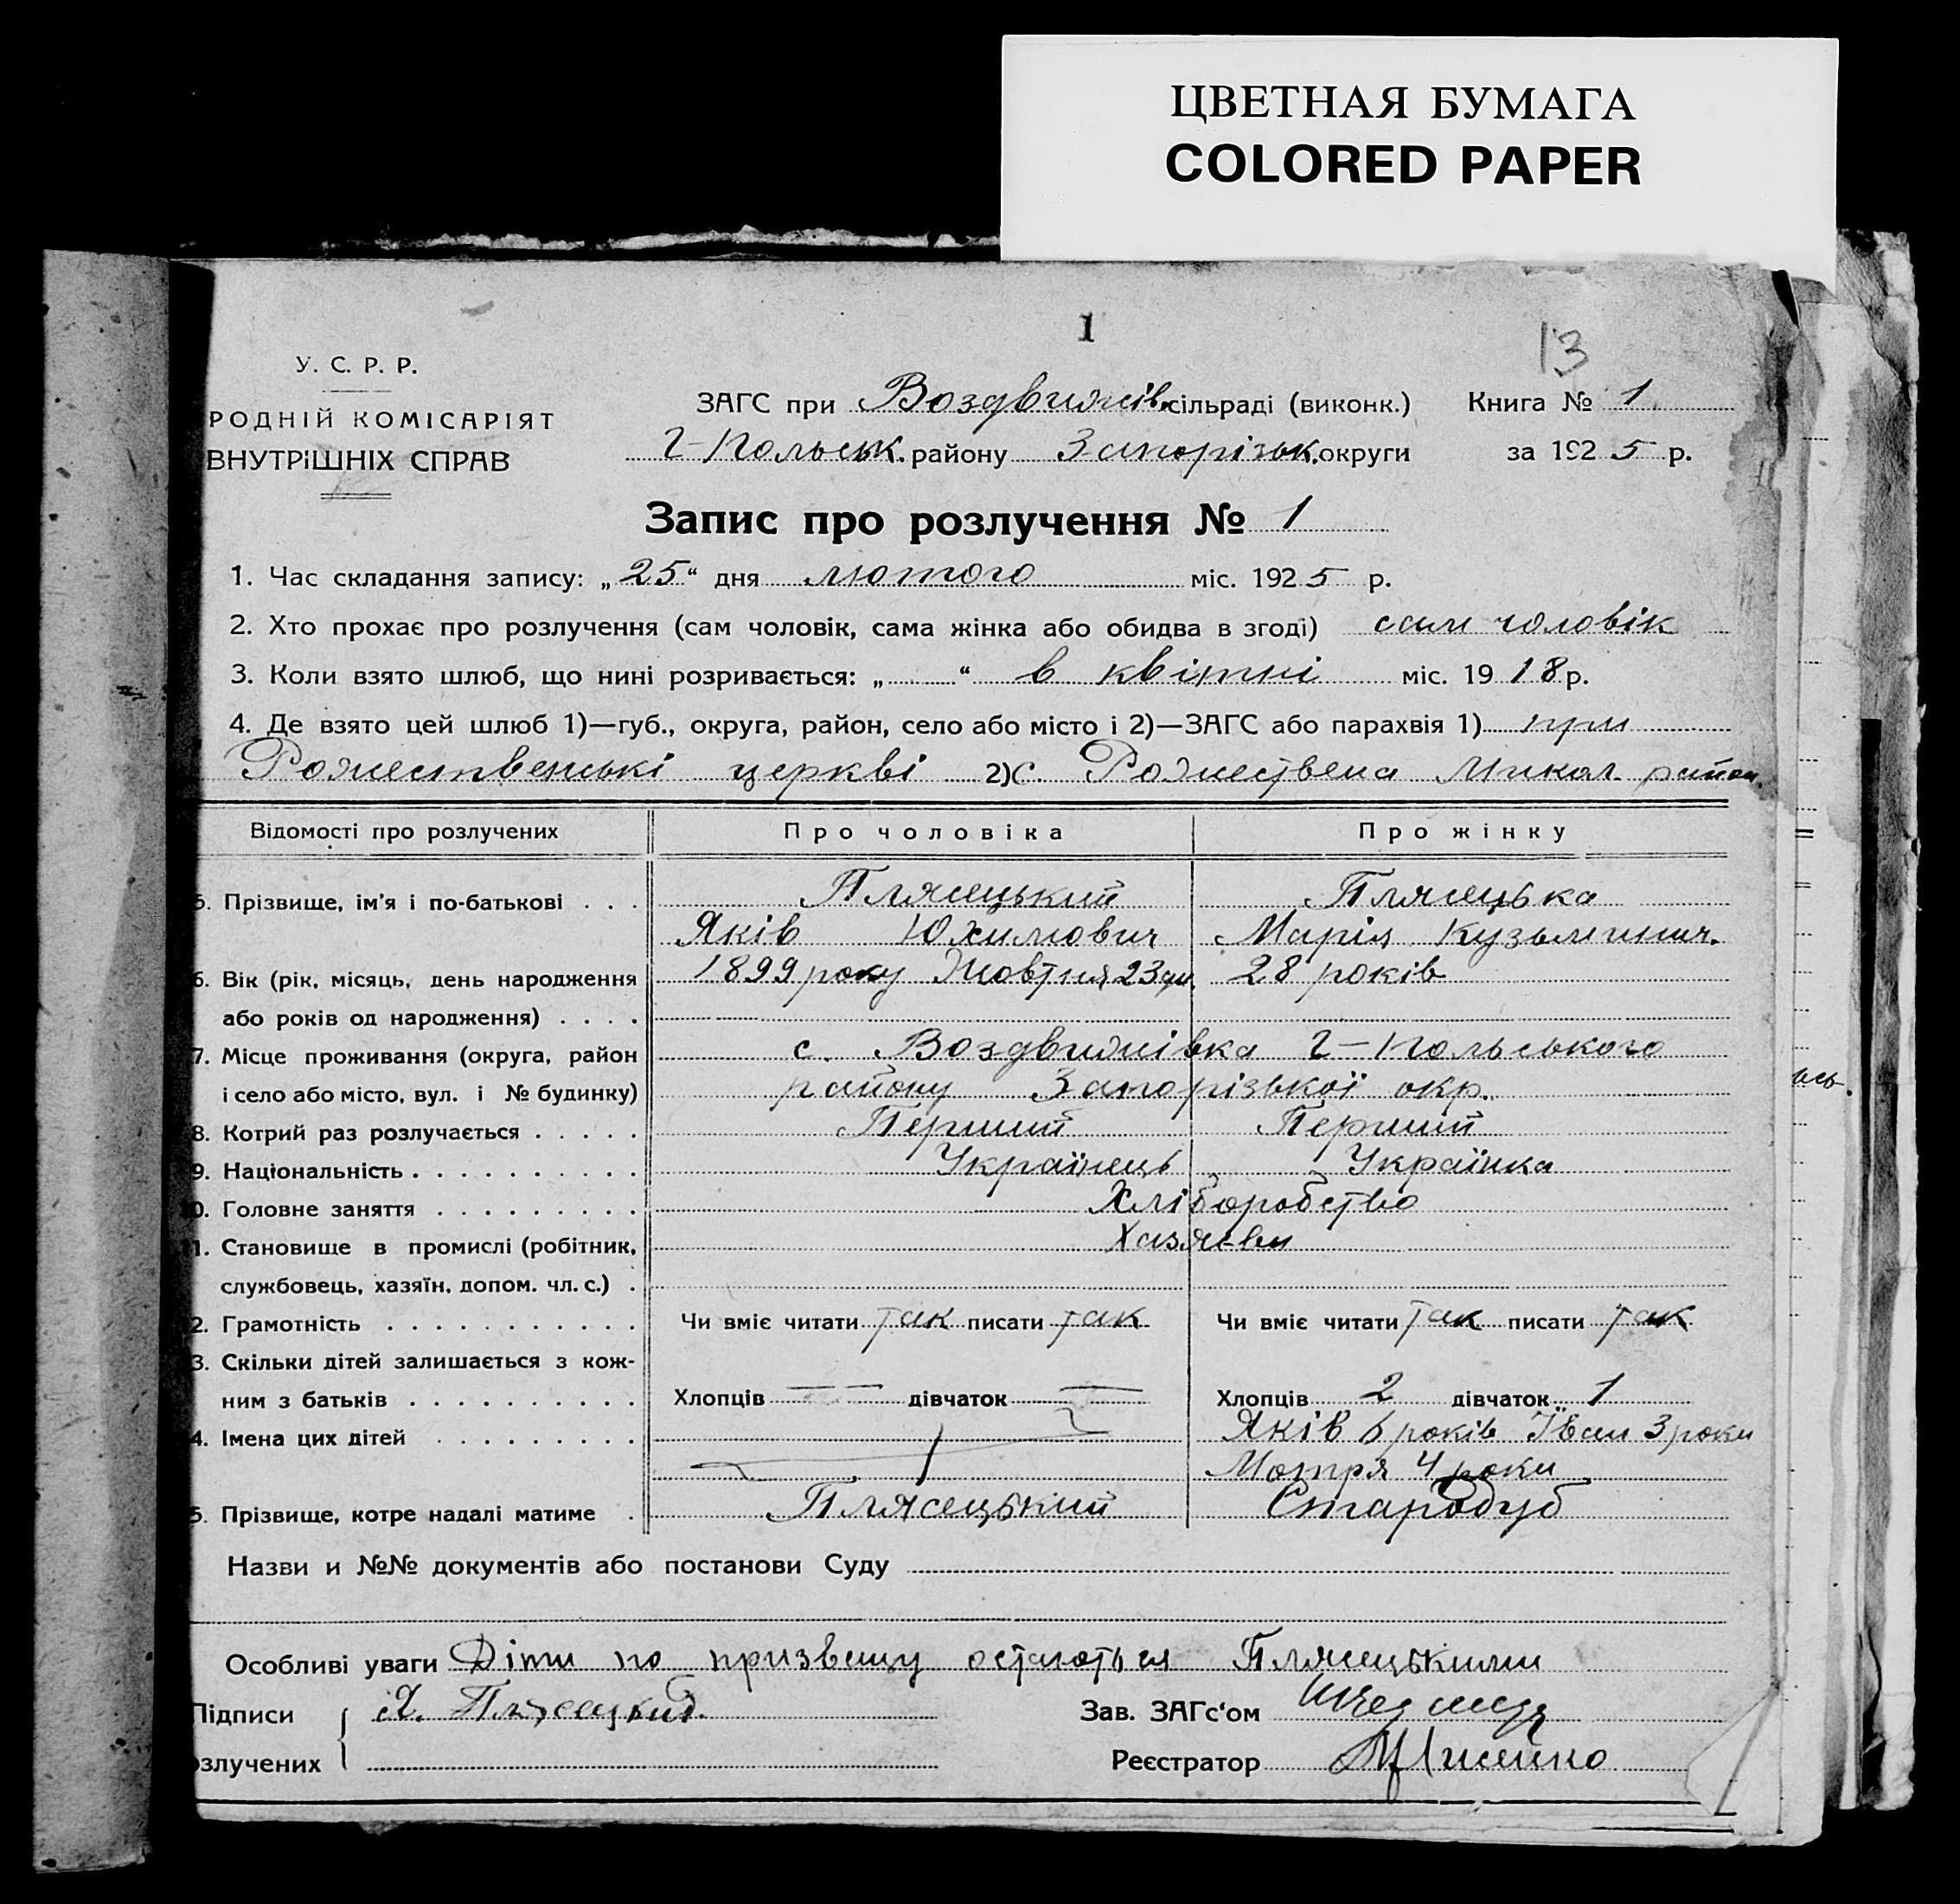 ЦВЕТНАЯ БУМАГА
COLORED PAPER
1
13
У. С. Р. Р.
РОДНІЙ КОМІСАРІЯТ
ВНУТРІШНІХ СПРАВ
ЗАГС при Воздвижів. сільраді (виконк.) Книга № 1
Г-Польськ. району Запорізьк. округи за 1925 р.
Запис про розлучення № 1
1. Час складання запису: „25“ дня лютого міс. 1925 р.
2. Хто прохає про розлучення (сам чоловік, сама жінка або обидва в згоді) сам чоловік
3. Коли взято шлюб, що нині розривається: „ “ в квітні міс. 1918 р.
4. Де взято цей шлюб 1)—губ., округа, район, село або місто і 2)—ЗАГС або парахвія 1) при
Рожественські церкві 2) С. Рожествена Микол. район.
Відомості про розлучених Про чоловіка Про жінку
5. Прізвище, ім'я і по-батькові . . . Плясецький Плясецька
Яків Юхимович Марія Кузьминич.
6. Вік (рік, місяць, день народження 1899 року Жовтня 23 дн. 28 років
або років од народження) . . . .
7. Місце проживання (округа, район с. Воздвижівка Г-Польського
і село або місто, вул. і № будинку) району Запорізької окр.
8. Котрий раз розлучається . . . . . Перший Перший
9. Національність . . . . . . . . . . Українець Українка
10. Головне заняття . . . . . . . . . Хліборобство
11. Становище в промислі (робітник, Хазяєви
службовець, хазяїн, допом. чл. с.) .
2. Грамотність . . . . . . . . . . . Чи вміє читати так писати так Чи вміє читати так писати так
3. Скільки дітей залишається з кож-
ним з батьків . . . . . . . . . . Хлопців — — дівчаток — Хлопців 2 дівчаток 1
4. Імена цих дітей . . . . . . . . . Яків 6 років Іван 3 роки
Мотря 4 роки
5. Прізвище, котре надалі матиме . Плясецький Стародуб
Назви и №№ документів або постанови Суду
Особливі уваги Діти по призвещу остаються Плясецькими
Підписи Я. Плясецкий. Зав. ЗАГс'ом
озлучених Реєстратор